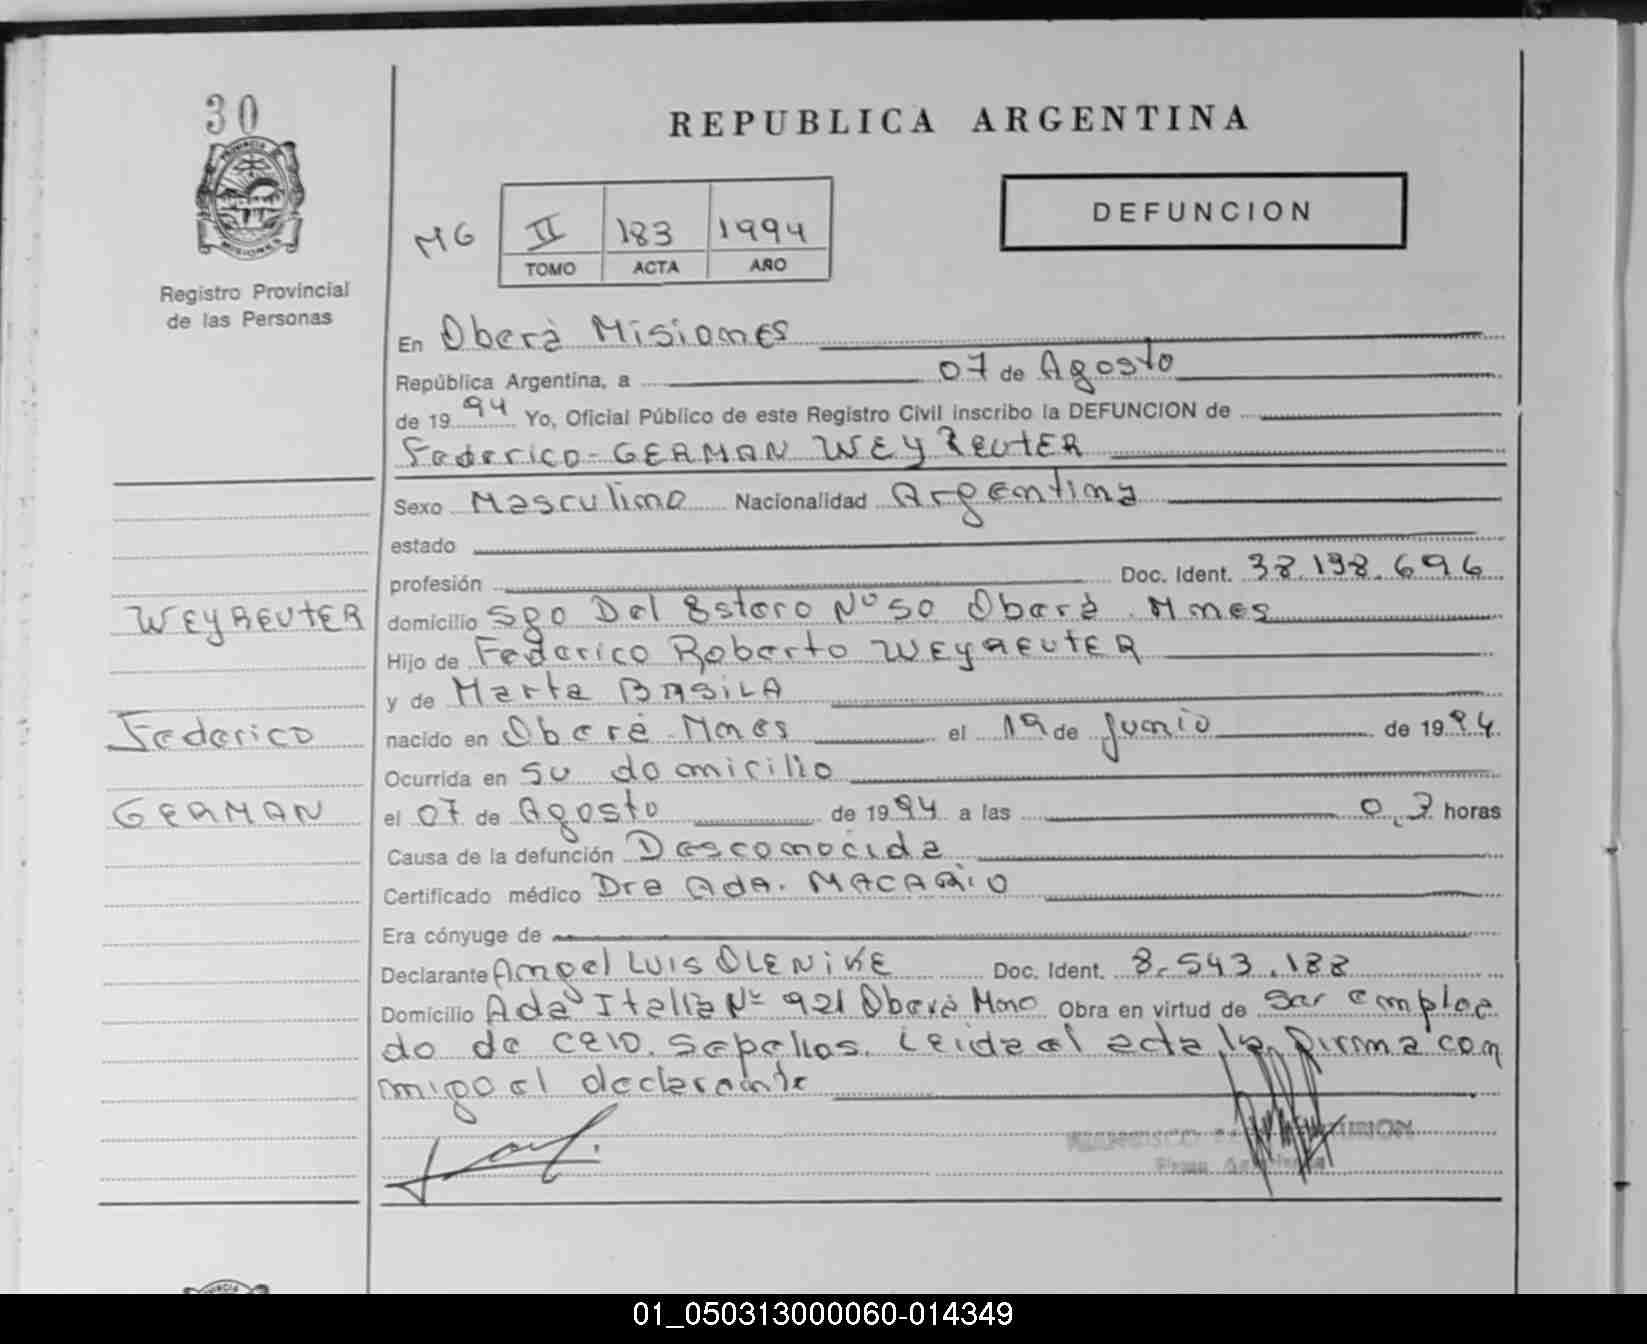 30
PROVINCIA
MISIONES
Registro Provincial
de las Personas
REPUBLICA ARGENTINA
DEFUNCION
MG II 183 1994
TOMO ACTA AÑO
En Oberà Misiones
República Argentina, a 07 de Agosto
de 1994 Yo, Oficial Público de este Registro Civil inscribo la DEFUNCION de
Federico-GERMAN WEYReutER
Sexo Masculino Nacionalidad Argentina
estado
profesión Doc. Ident. 38.198.696
WEYREUTER
domicilio Sgo Del Estero Nº 50 Oberà. Mnes
Hijo de Federico Roberto WEYREUTER
y de Marta BASILA
Federico
nacido en Oberà Mnes el 19 de Junio de 1994.
Ocurrida en su domicilio
GERMAN
el 07 de Agosto de 1994 a las 0,3 horas
Causa de la defunción Desconocida
Certificado médico Dra Ada. MACARIO
Era cónyuge de
Declarante Angel LUIS OLENIKE Doc. Ident. 8.543.188
Domicilio Adà Italia Nº 921 Oberà Mnes Obra en virtud de ser emplea
do de CELO. Sepelios. Leida el acta la firma con
migo el declarante
01_050313000060-014349